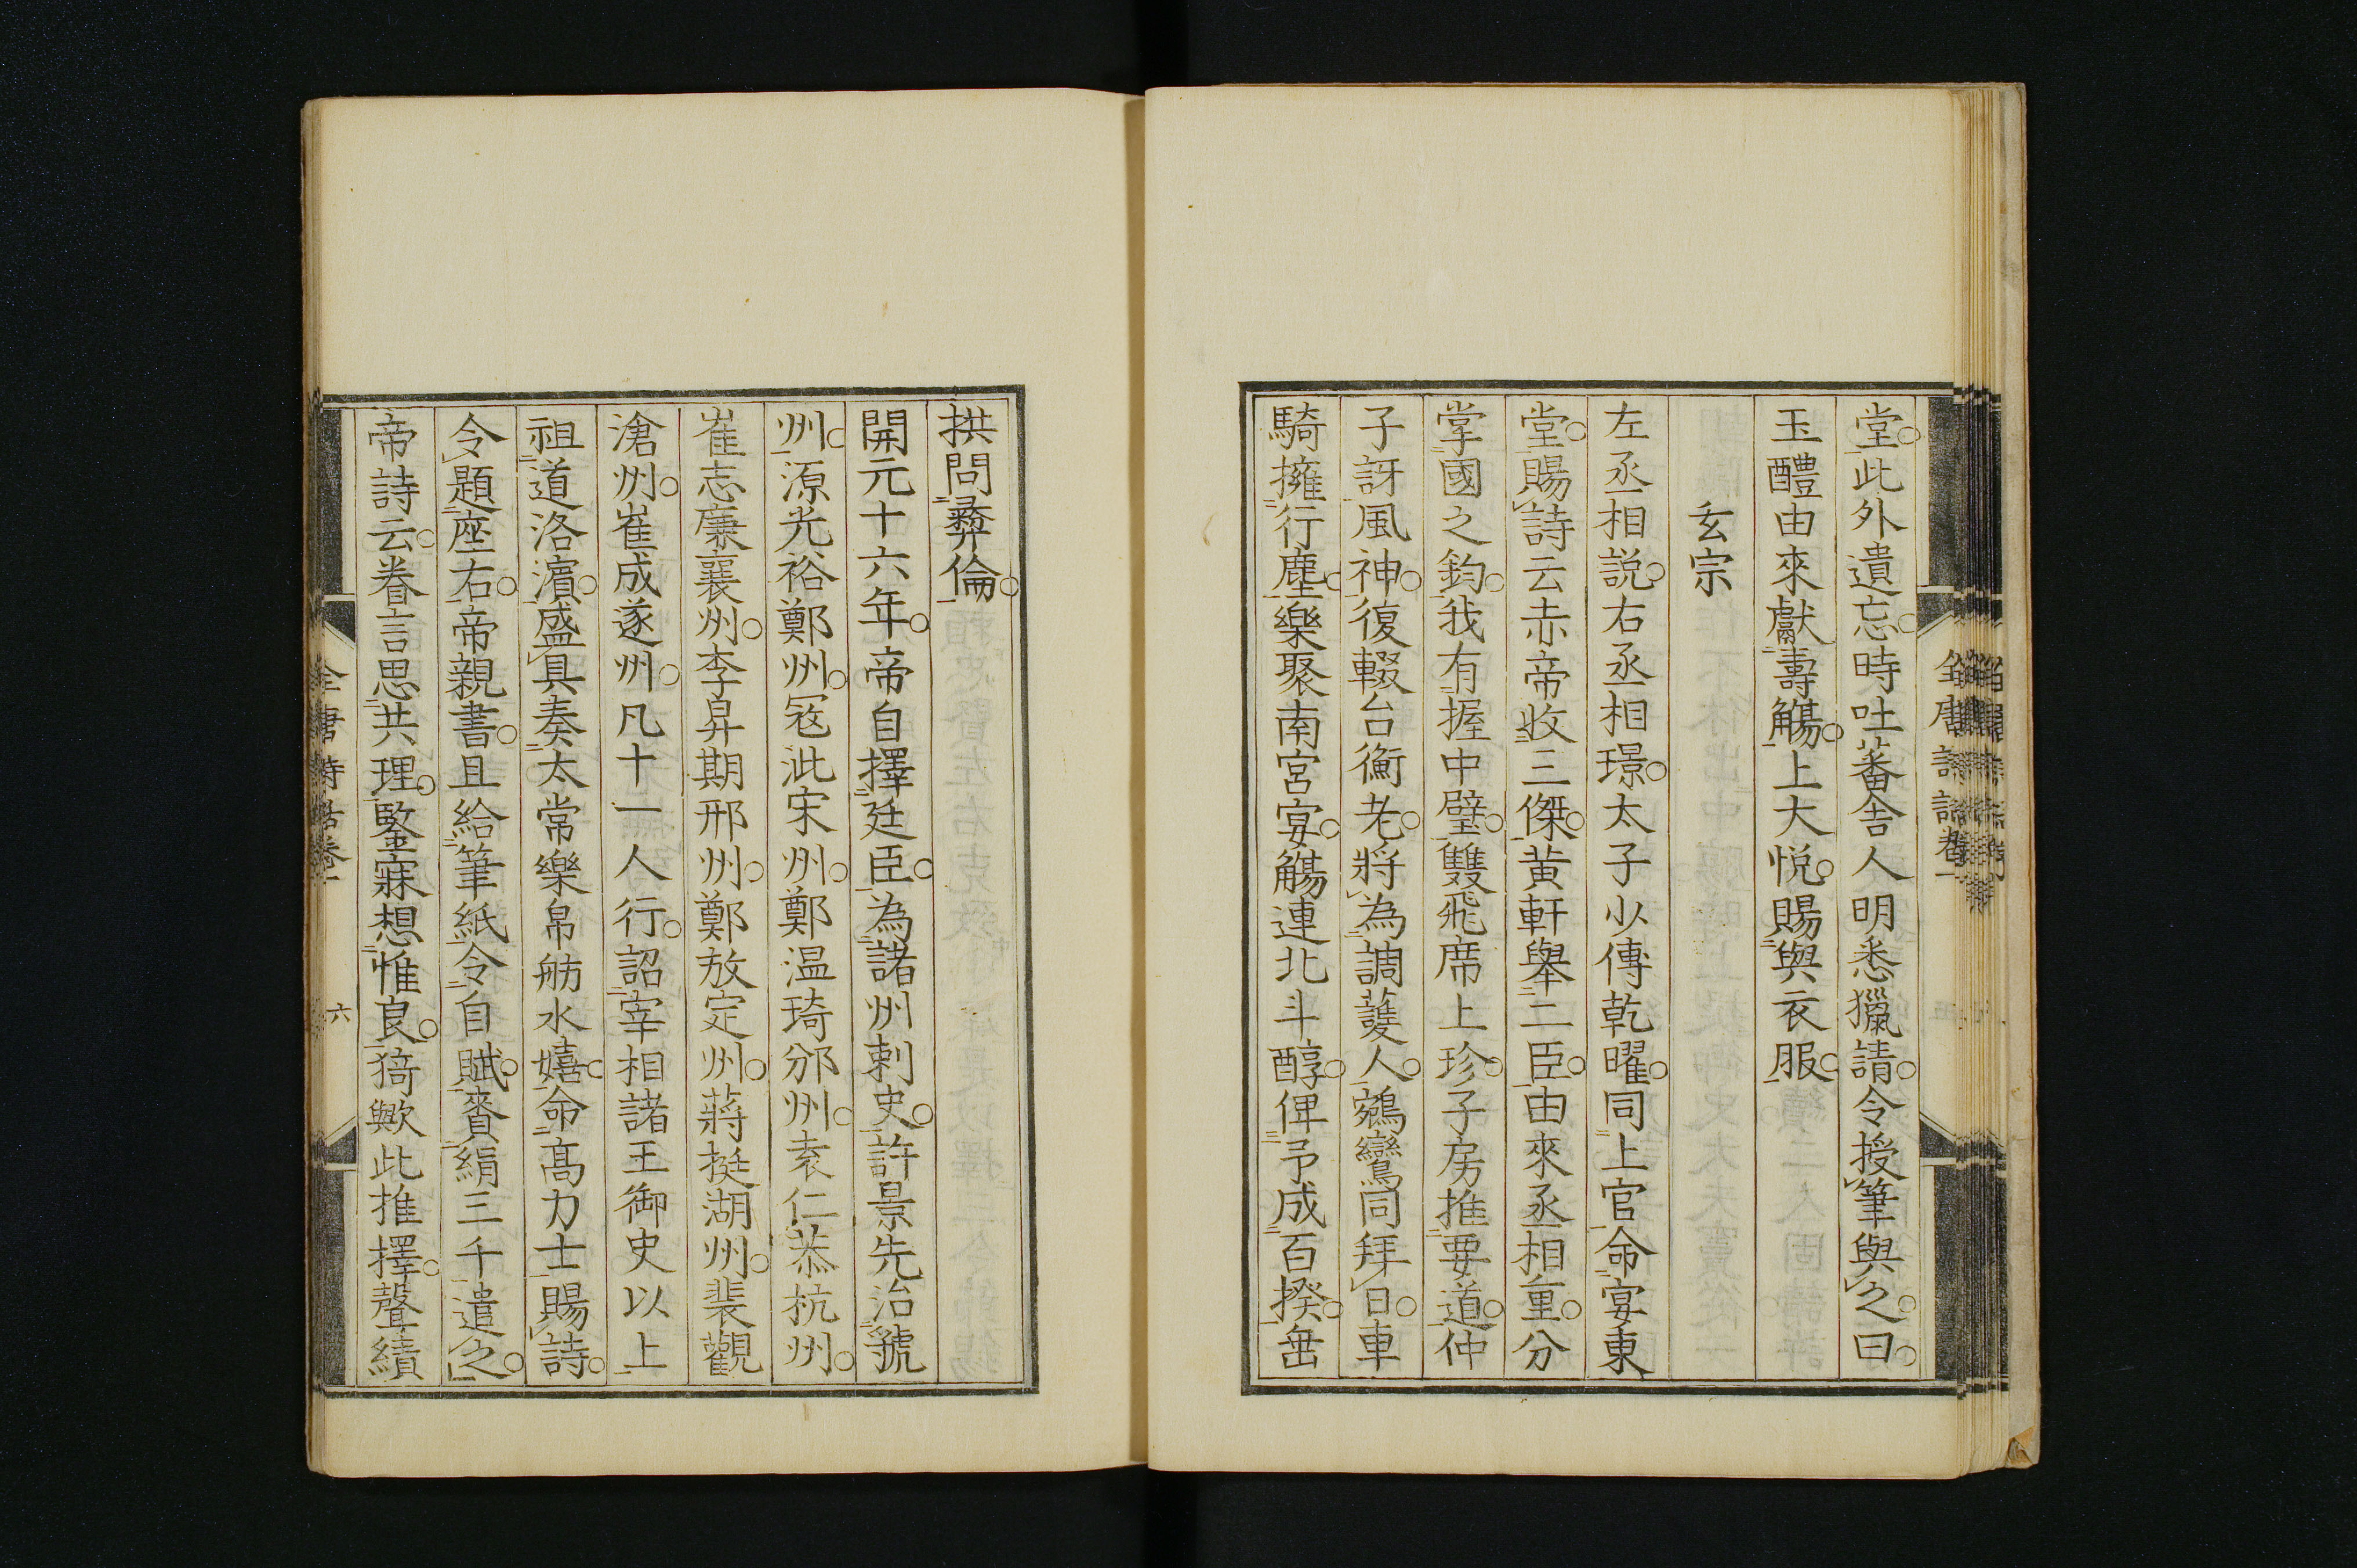 堂此外遺忘時吐蕃舎人明悉獵請令授筆與之曰
玉醴由來獻壽觴上大悅賜與衣服
玄宗
左丞相説右丞相璟太子少傅乾曜同上官命宴東
堂賜詩云赤帝收三傑黃軒舉二臣由來丞相重分
掌國之鈞我有握中璧雙飛席上珍子房推要道仲
子訝風神復輟台衡老將為調護人鵷鸞同拜日車
騎擁行塵樂聚南宮宴觴連北斗醇俾予成百揆垂
全唐詩話卷一
拱問彝倫
開元十六年帝自擇廷臣為諸州刺史許景先治虢
州源光裕鄭州寇泚宋州鄭温琦邠州袁仁恭杭州
崔志廉襄州李昇期邢州鄭放定州蔣挺湖州裴觀
滄州崔成遂州凡十一人行詔宰相諸王御史以上
祖道洛濱盛具奏太常樂帛舫水嬉命高力士賜詩
令題座右帝親書且給筆紙令自賦賚絹三千遣之
帝詩云眷言思共理鑒寐想惟良猗歟此推擇聲績
全唐詩話卷一
六